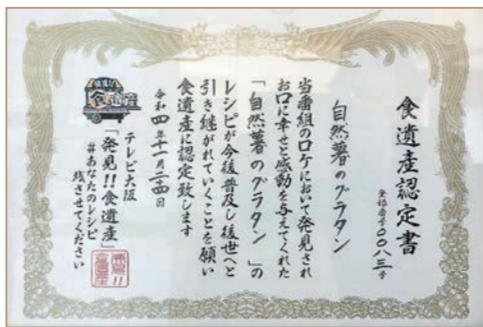 食遺産認定書
登録番号〇〇八三号
自然薯のグラタン
当番組のロケにおいて発見され
お口に幸せと感動を与えてくれた
「自然薯のグラタン」の
レシピが今後普及し後世へと
引き継がれていくことを願い
食遺産に認定致します
令和四年十一月二十四日
発見!!
食遺産
テレビ大阪
「発見!!食遺産」
#あなたのレシピ
残させてください
発見!!
食遺産